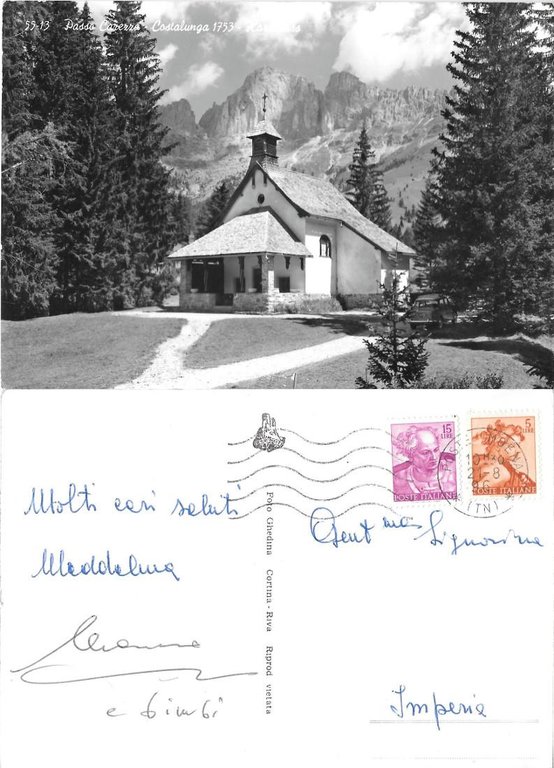 55-13 Passo Carezza - Costalunga 1753
Molti cari saluti
Maddalena
e bimbi
Foto Ghedina Cortina - Riva Riprod vietata
15 LIRE
POSTE ITALIANE
5 LIRE
POSTE ITALIANE
(TN)
Gent ma Signorina
Imperia